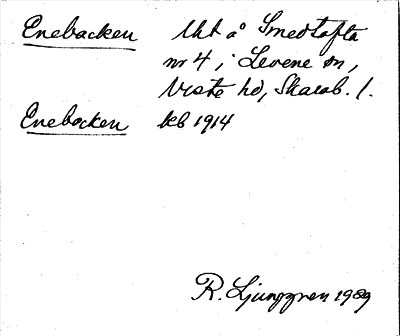 Enebacken lht å Smedtofta
nr 4 i Levene sn,
Viste hd, Skarab. l.
Enebocken kb 1914
R. Ljunggren 1989